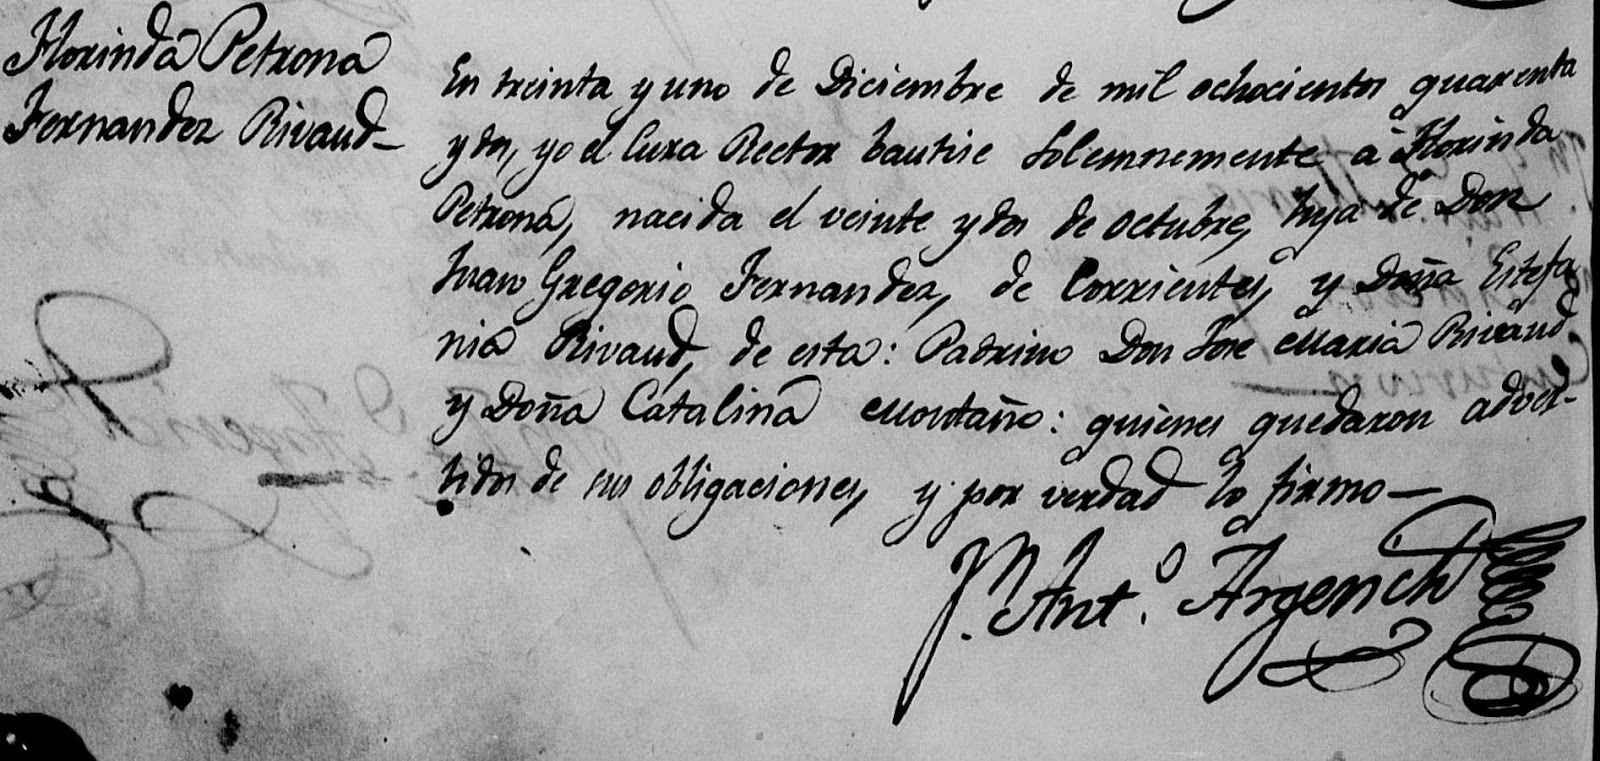 Florinda Petrona
Fernandez Rivaud—
En treinta y uno de Diciembre de mil ochocientos quarenta
y dos, yo el Cura Rector bautise solemnemente à Florinda
Petrona, nacida el veinte y dos de octubre, hija de Don
Juan Gregorio Fernandez, de Corrientes, y Doña Estefa
nia Rivaud, de esta: Padrino Don Jose Maria Rivaud
y Doña Catalina Montaño: quienes quedaron adver-
tidos de sus obligaciones, y por verdad lo firmo—
J. Ant.º Argerich